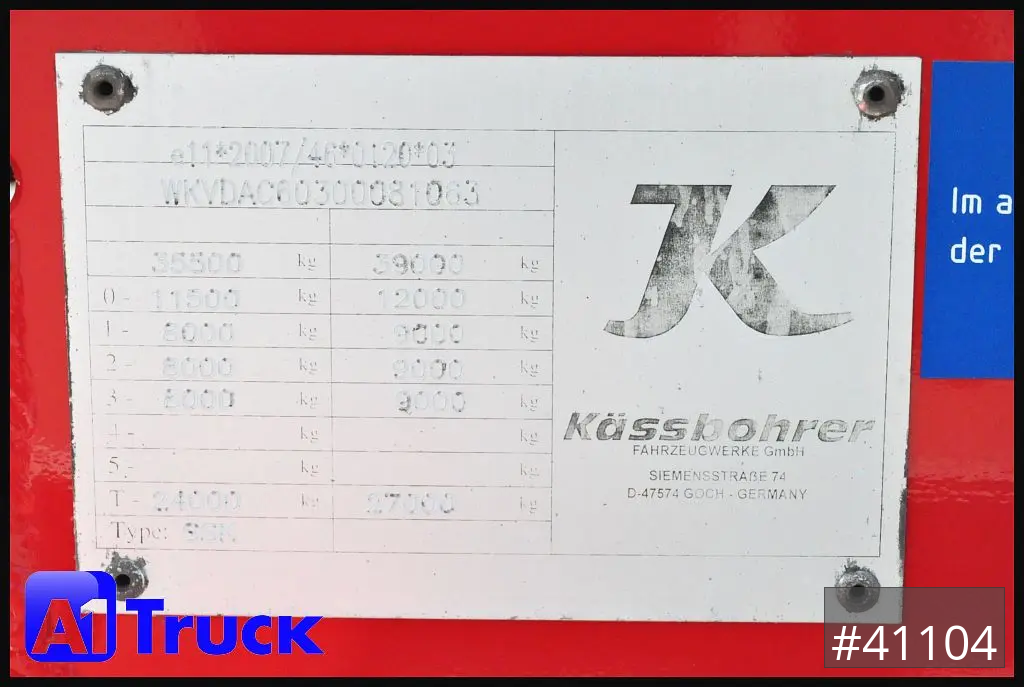 e11*2007/46*0120*03
WKYDAC60300081063
35500 kg 39000 kg
0 - 11500 kg 12000 kg
1 - 8000 kg 9000 kg
2 - 8000 kg 9000 kg
3 - 8000 kg 9000 kg
4 - kg kg
5 - kg kg
T - 24000 kg 27000 kg
Type:
K
Kässbohrer
FAHRZEUGWERKE GmbH
SIEMENSSTRAßE 74
D-47574 GOCH - GERMANY
Im a
der
A1 Truck
#41104